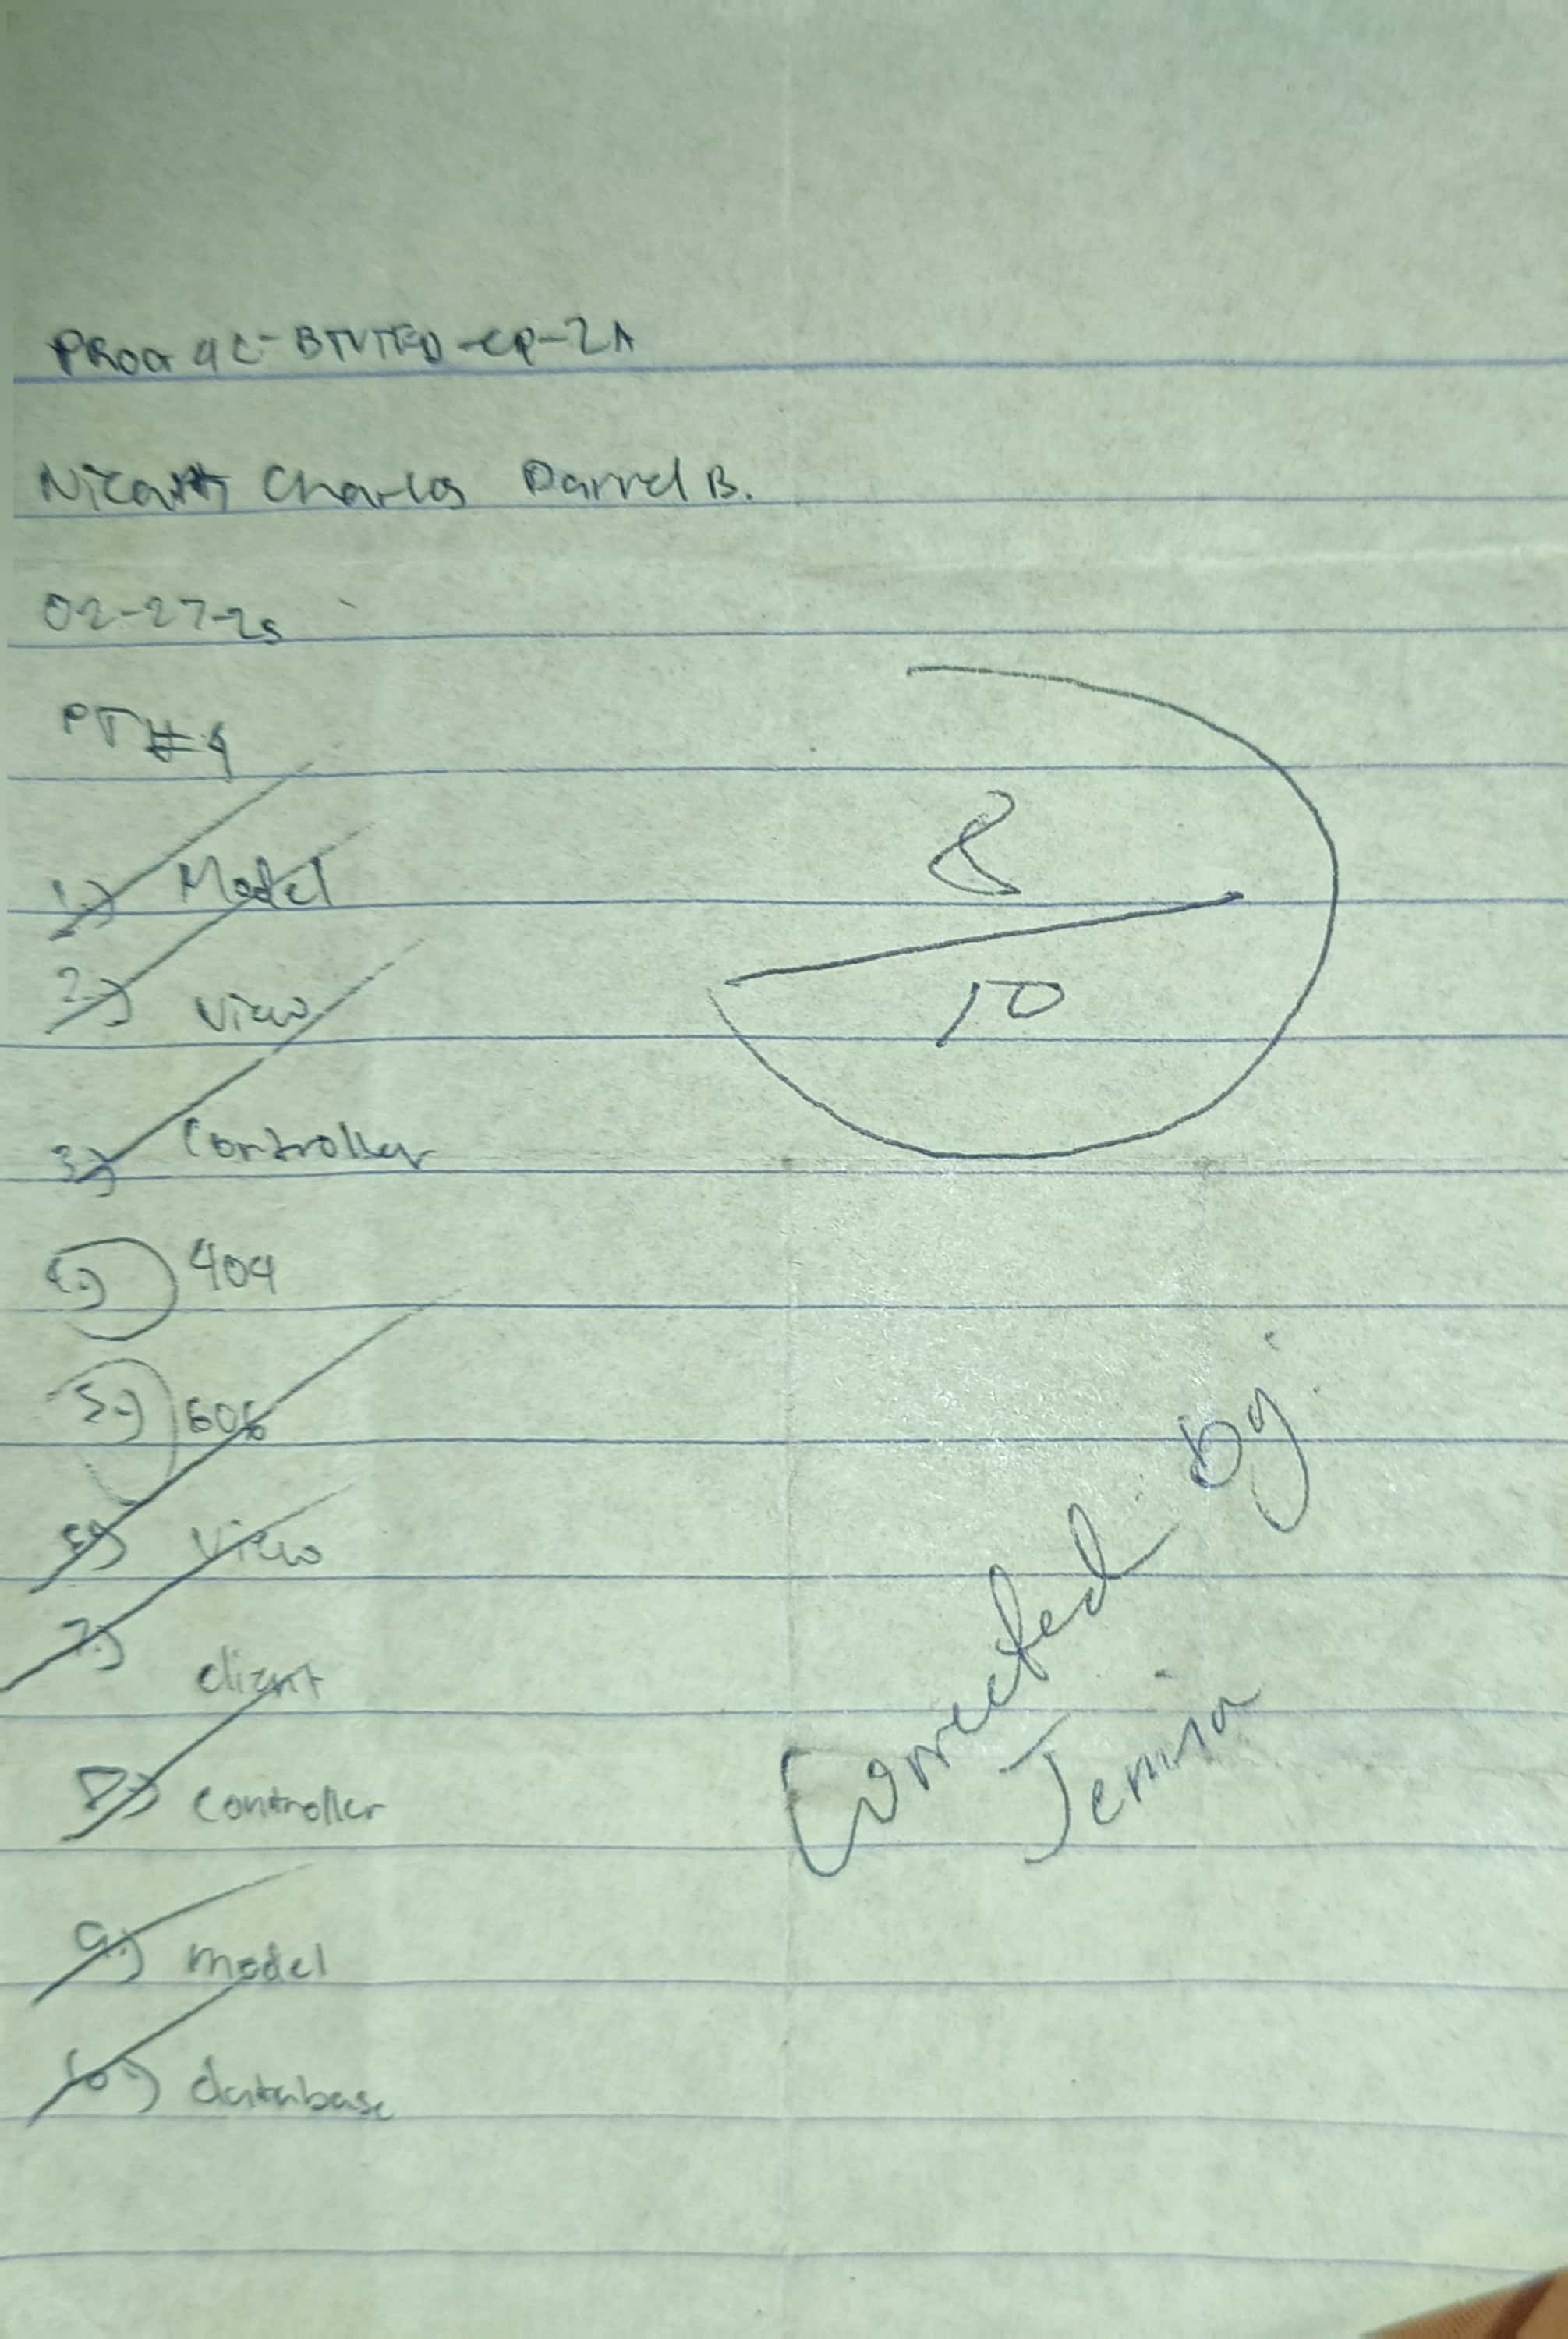 PROG 4C-BTVTED-CP-2A
Charles Darrel B.
02-27-25
PT#4
1.) Model
2.) View
3.) Controller
4.) 404
5.) 606
6.) View
7.) client
8.) Controller
9.) model
10.) database
8
10
Corrected by:
Jemira